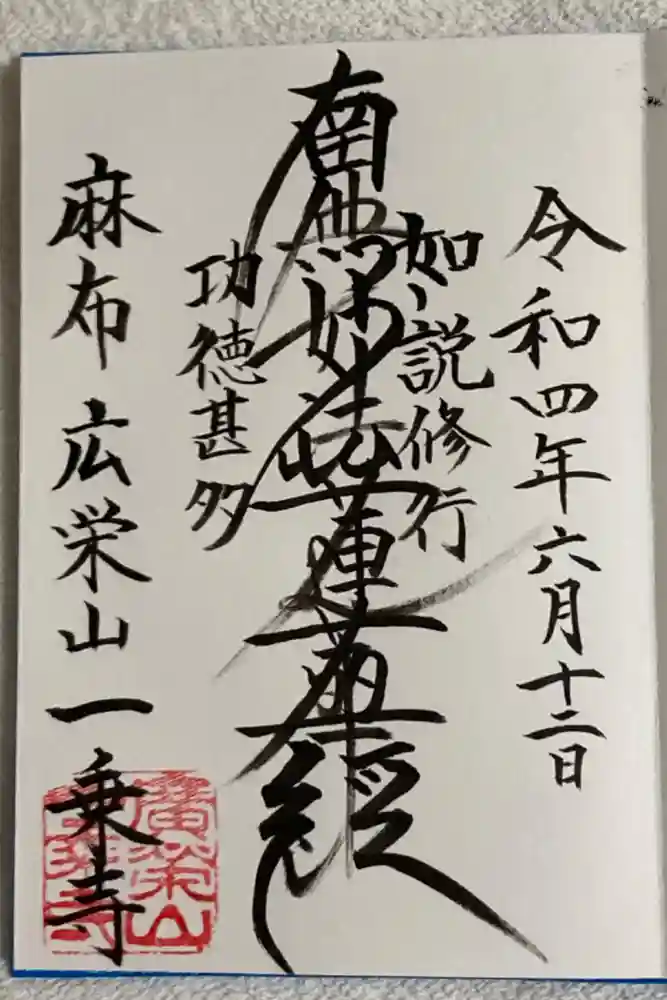 令和四年六月十二日
如説修行
南無妙法蓮華経
功徳甚多
麻布 広栄山一乗寺
廣栄山一乗寺